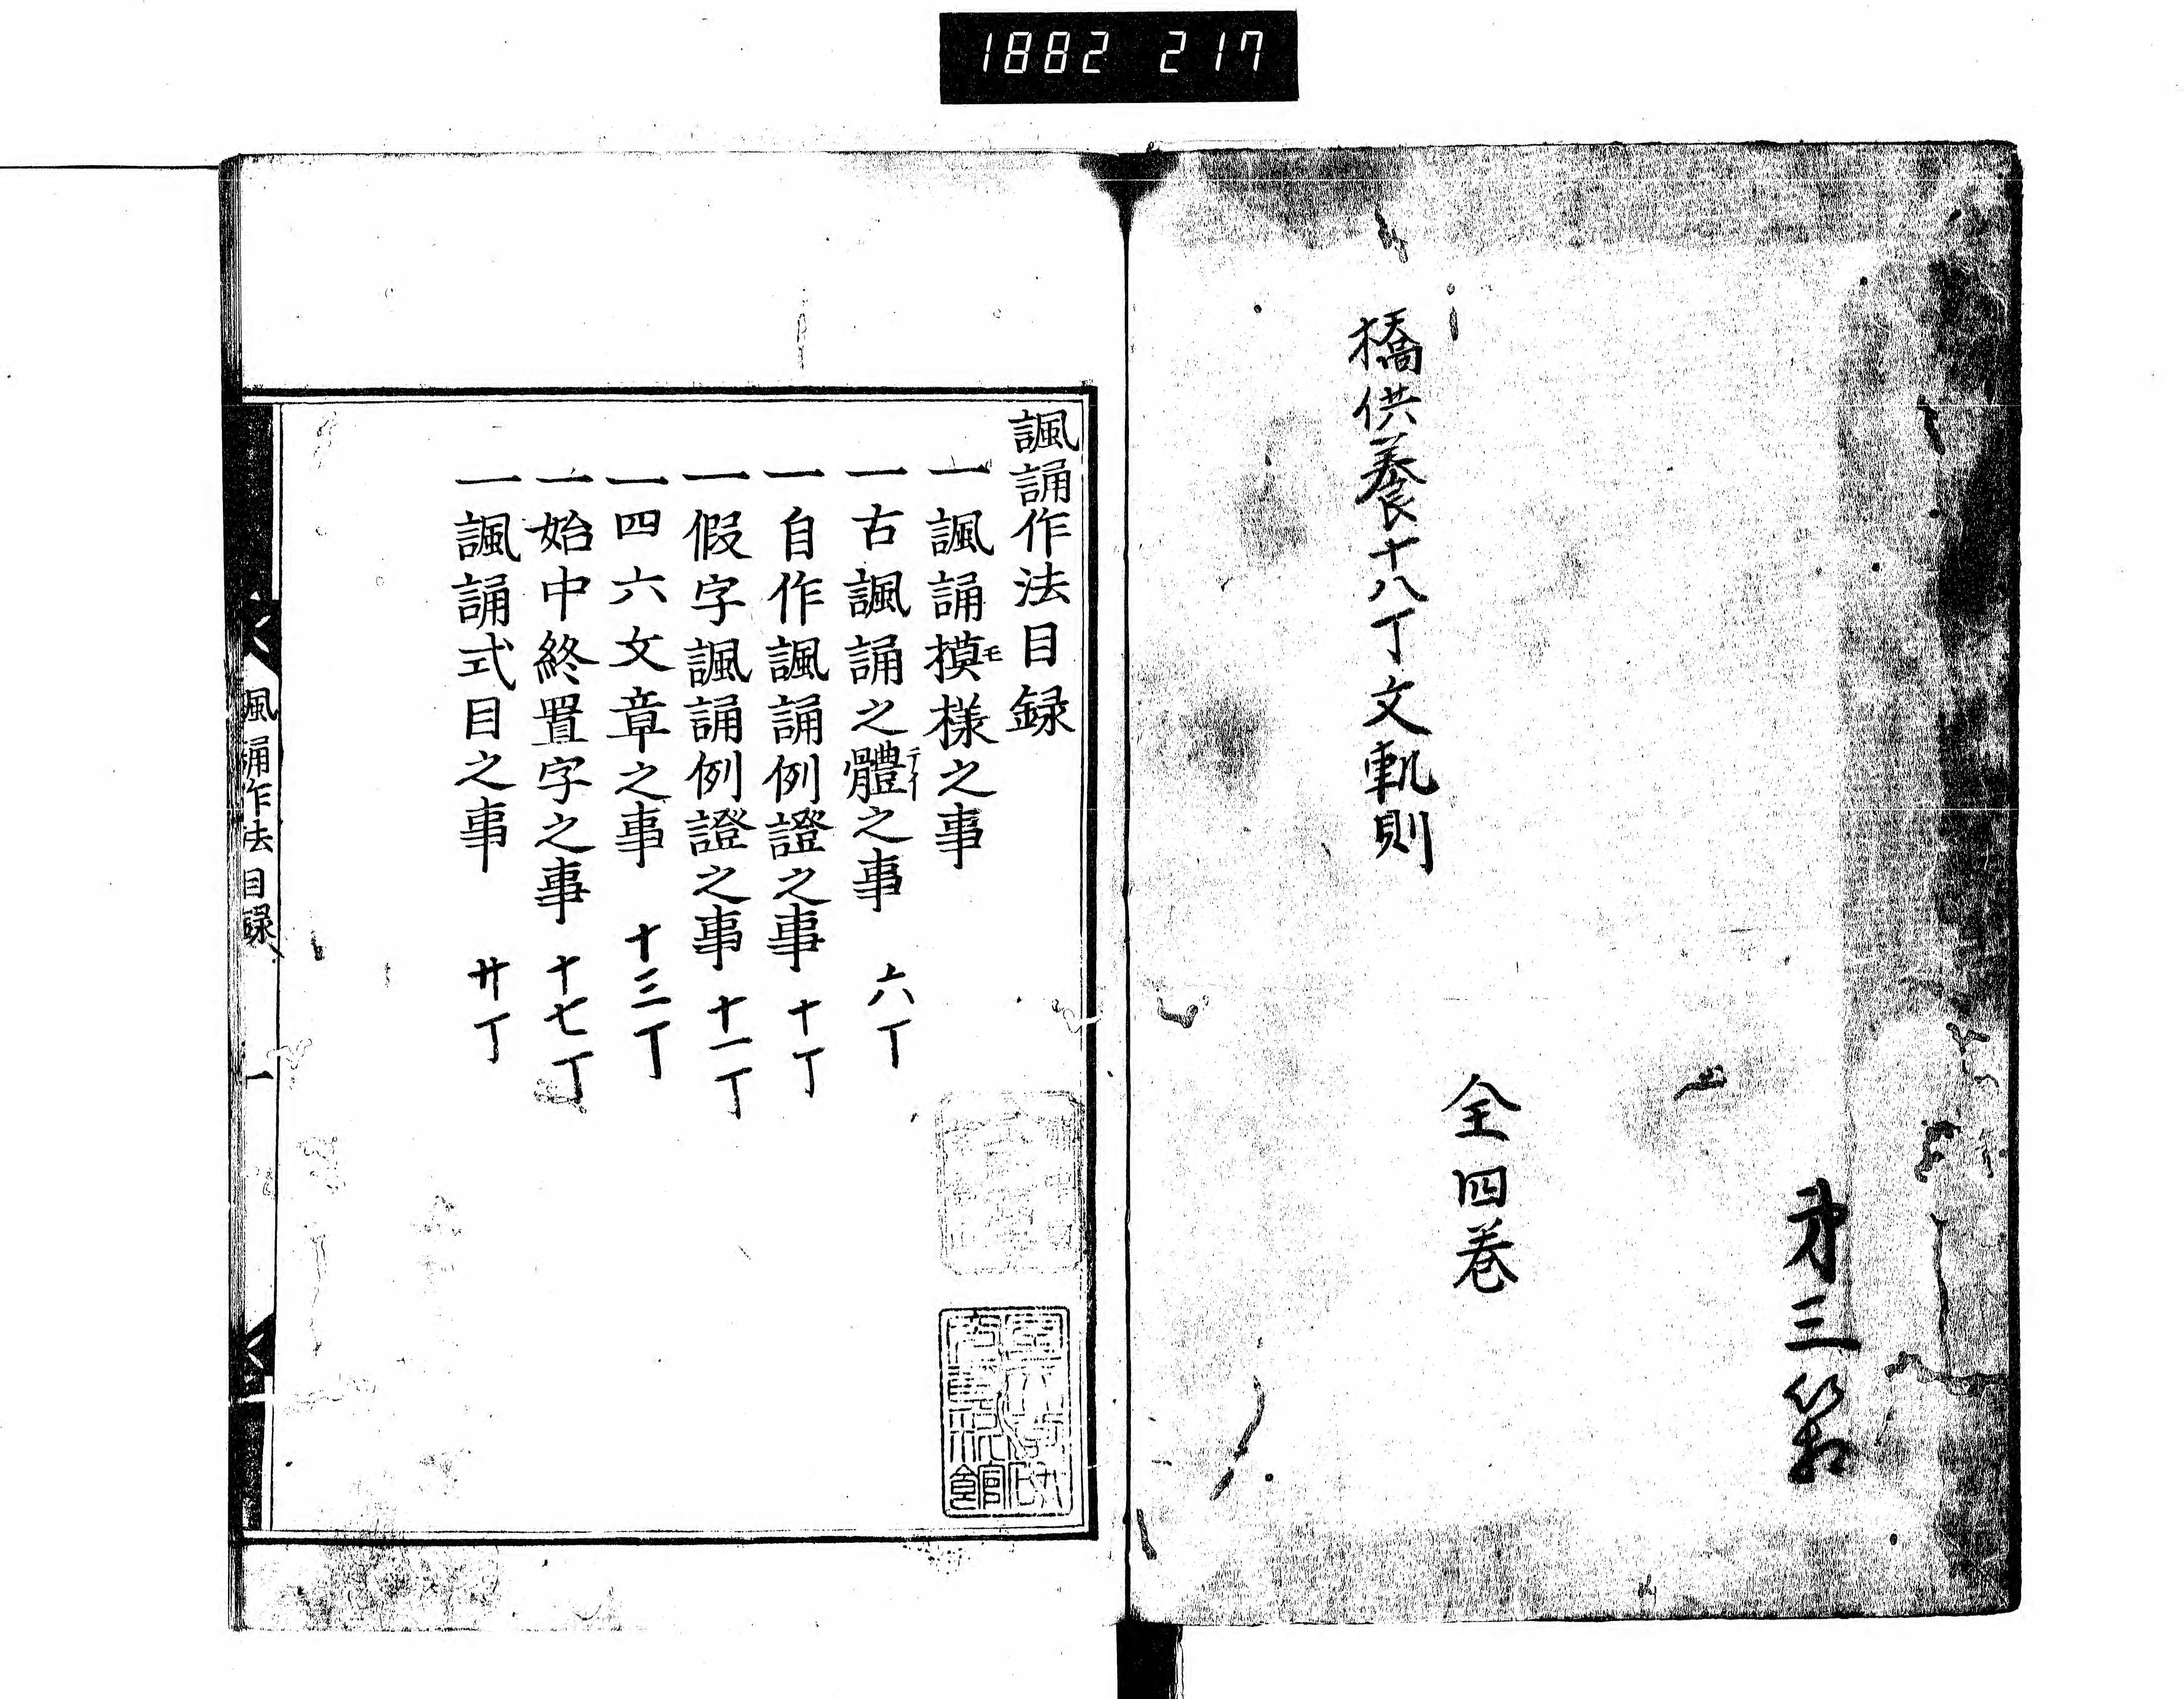 1882 217
第三箱
全四巻
橋供養十八丁文軌則
諷誦作法目録
一諷誦摸モ様之事
一古諷誦之體テイ之事 六丁
一自作諷誦例證之事 十丁
一假字諷誦例證之事 十一丁
一四六文章之事 十三丁
一始中終置字之事 十七丁
一諷誦式目之事 廿丁
諷誦作法目録 一